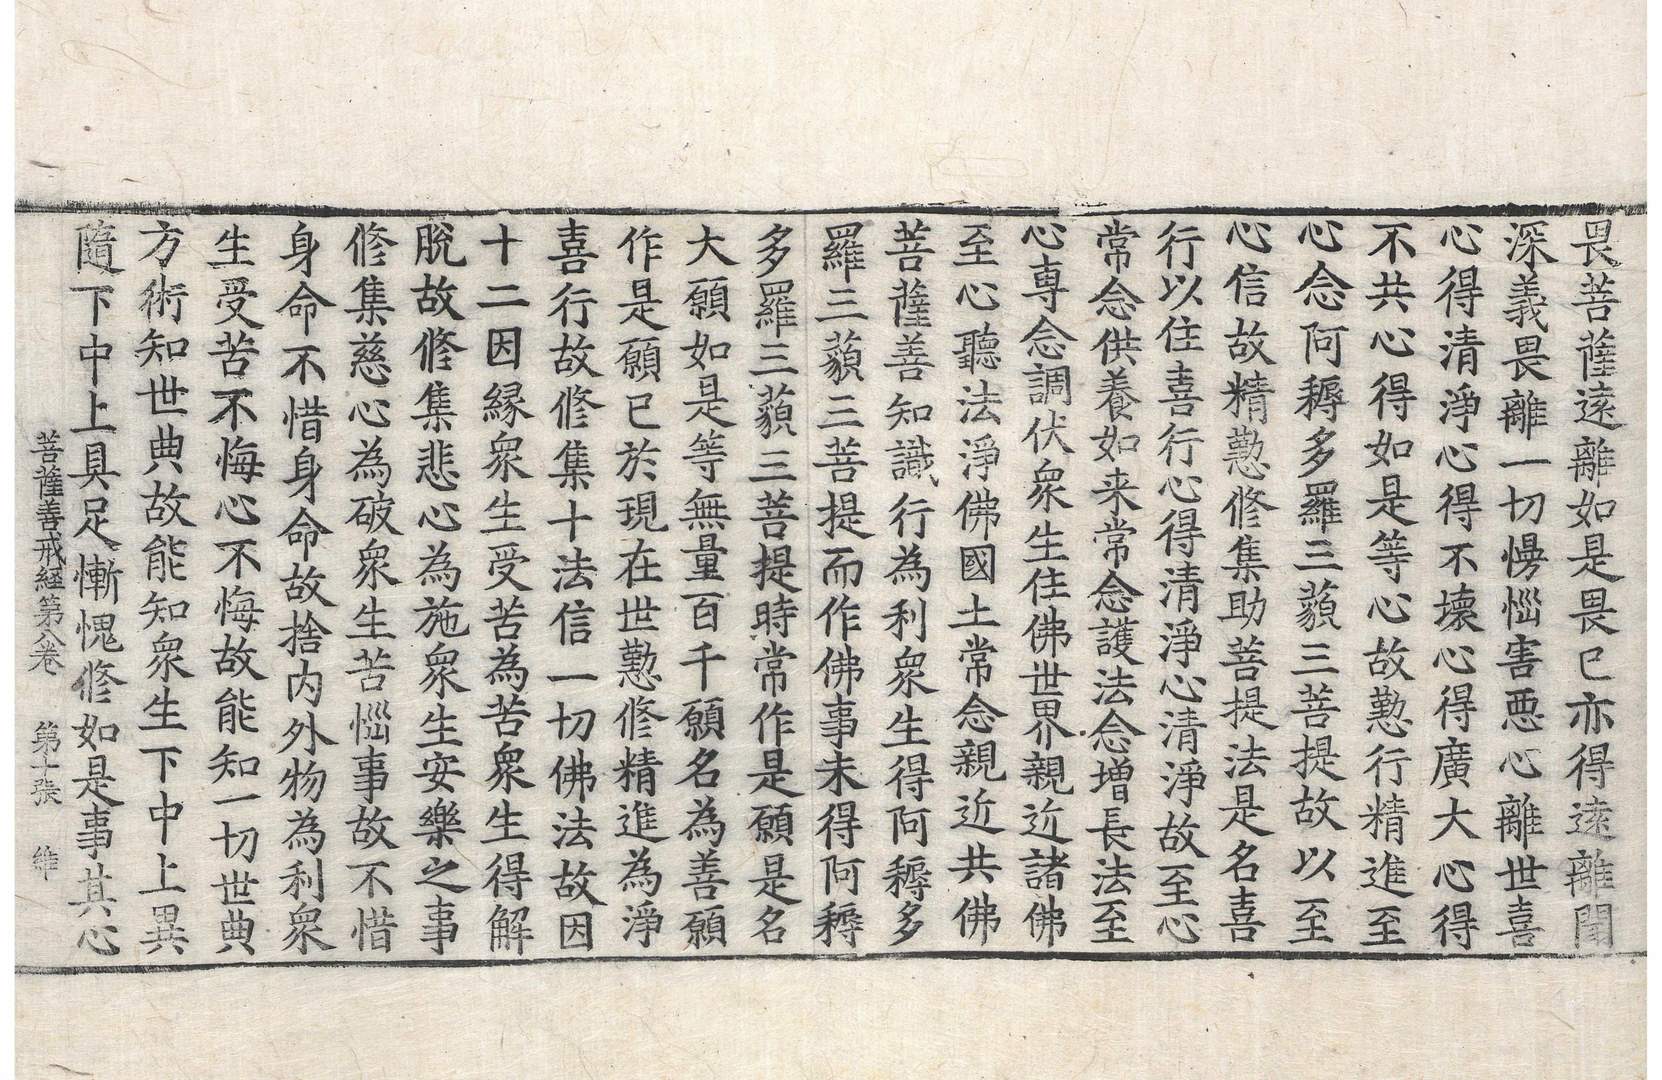 畏菩薩遠離如是畏已亦得遠離聞
深義畏離一切憍慢惱害惡心離世喜
心得清淨心得不壞心得廣大心得
不共心得如是等心故懃行精進至
心念阿耨多羅三藐三菩提故以至
心信故精懃修集助菩提法是名喜
行以住喜行心得清淨心清淨故至心
常念供養如来常念護法念增長法至
心専念調伏衆生住佛世界親近諸佛
至心聽法淨佛國土常念親近共佛
菩薩善知識行為利衆生得阿耨多
羅三藐三菩提而作佛事未得阿耨
多羅三藐三菩提時常作是願是名
大願如是等無量百千願名為善願
作是願已於現在世懃修精進為淨
喜行故修集十法信一切佛法故因
十二因縁衆生受苦為苦衆生得解
脫故修集悲心為施衆生安樂之事
修集慈心為破衆生苦惱事故不惜
身命不惜身命故捨内外物為利衆
生受苦不悔心不悔故能知一切世典
方術知世典故能知衆生下中上異
隨下中上具足慚愧修如是事其心
菩薩善戒經第八卷　第十張　維